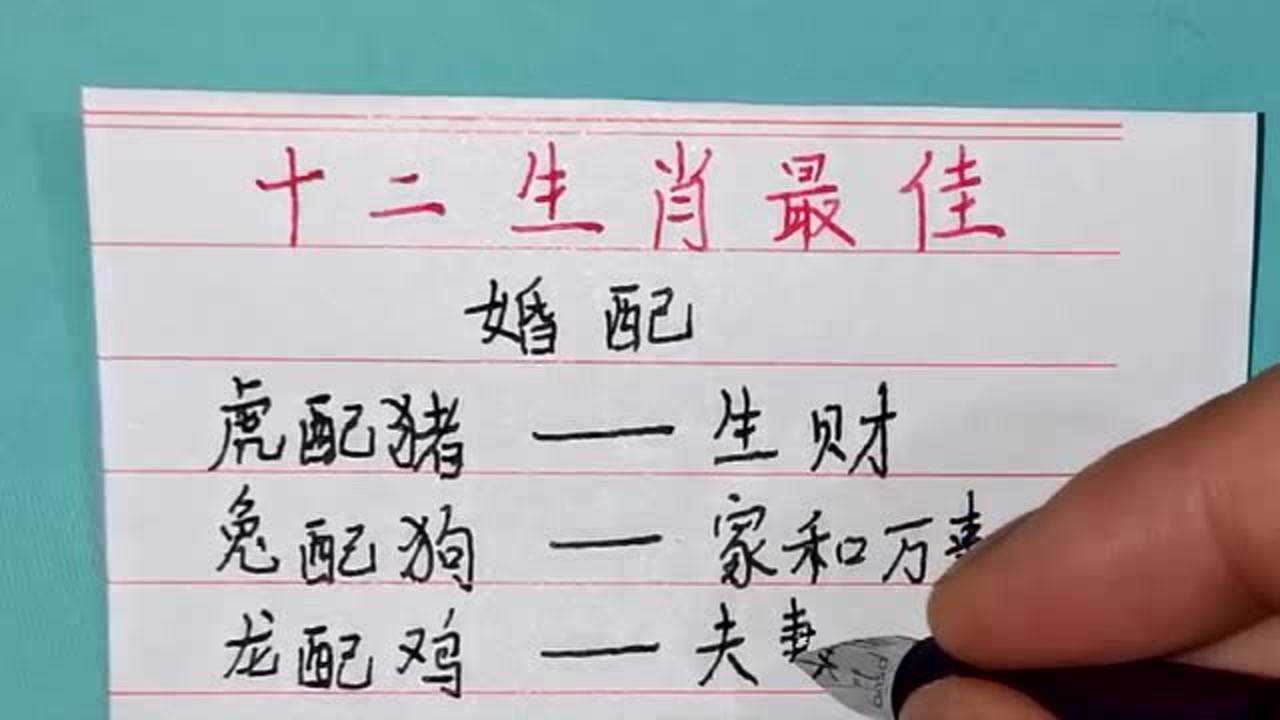 十二生肖最佳
婚配
虎配猪——生财
兔配狗——家和万事
龙配鸡——夫妻